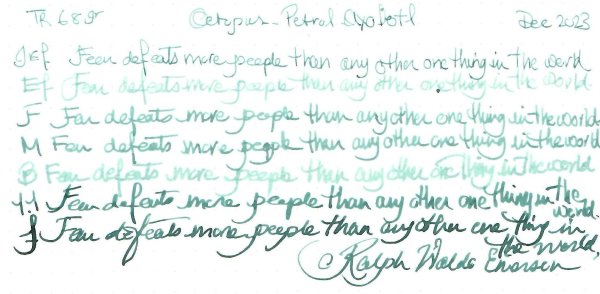 TR 68gr Octopus - Petrol Axolotl Dec 2023
JEf Fear defeats more people than any other one thing in the world
Ef Fear defeats more people than any other one thing in the world.
F Fear defeats more people than any other one thing in the world.
M Fear defeats more people than any other one thing in the world
B Fear defeats more people than any other one thing in the world
1.1 Fear defeats more people than any other one thing in the world.
f Fear defeats more people than any other one thing in the world.
Ralph Waldo Emerson